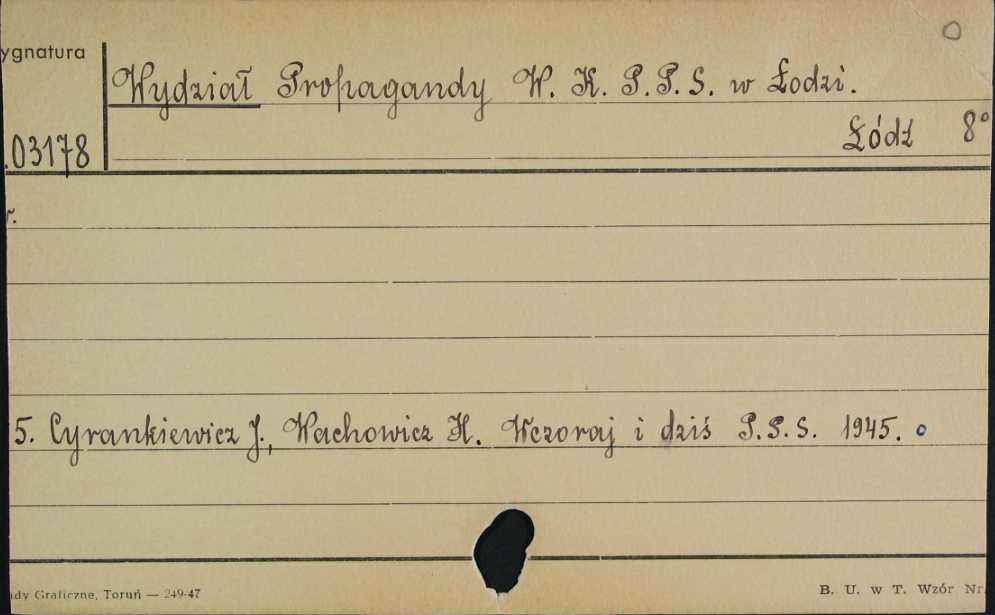 ygnatura
Wydział Propagandy W. K. P.P.S. w Łodzi.
Łódź 8°
.03178
r.
5. Cyrankiewicz J., Wachowicz H. Wczoraj i dziś P.P.S. 1945.
ady Graficzne, Toruń — 249-47
B. U. w T. Wzór Nr.